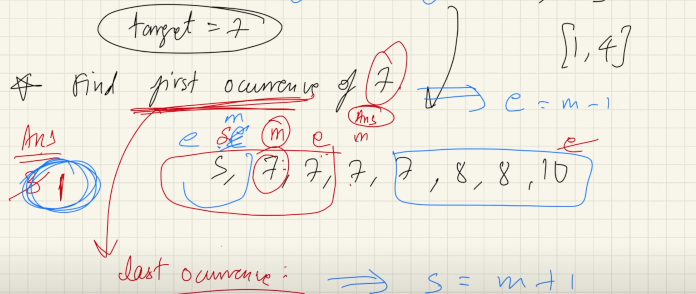 target = 7
[1, 4]
* Find first ocurrence of 7 ⇒ e = m - 1
Ans
m
Ans
e s e m e m
e
3 1
5, 7, 7, 7, 7, 8, 8, 10
last ocurrence : ⇒ s = m + 1